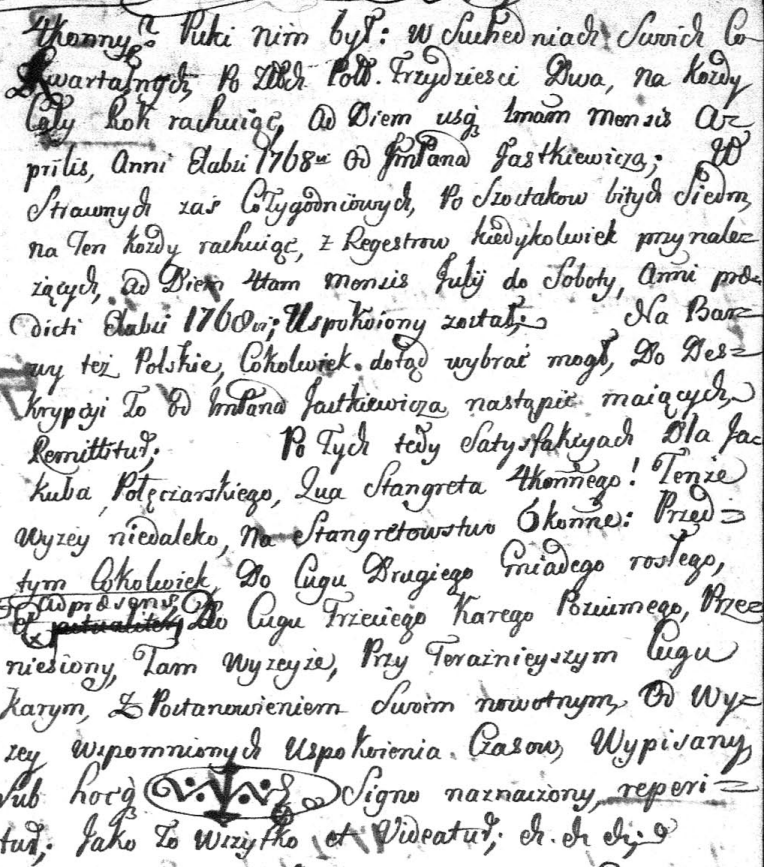 4konny? Puki nim był: w Suchedniach Swoich Co-
kwartalnych, Po Złłch Poll. Trzydziesci Dwa, na Kożdy
Cały Rok rachuiąc, ad Diem usq 1mam mensis A=
prilis, Anni Elabsi 1768vi Od JmPana Jastkiewicza; W
Strawnych zaś Cotygodniowych, Po Szostakow bitych Siedm,
na Ten Kożdy rachuiąc, z Regestrow kiedykolwiek przynale=
żących, ad Diem 4tam mensis Julij do Soboty, Anni præ=
dicti Elabsi 1768vi; Uspokoiony został; Na Bar=
wy też Polskie, Cokolwiek dotąd wybrać mogł, Do Des=
krypcyi To od JmPana Jastkiewicza nastąpić maiących,
Remittitur; Po Tych tedy Satysfakcyach Dla Ja=
kuba Potęczarskiego, Qua Stangreta 4konnego! Tenże
Wyzey niedaleko, Na Stangretowstwo 6konne: Przed=
tym Cokolwiek, Do Cugu Drugiego Gniadego rosłego,
et ad præsens, Do Cugu Trzeciego Karego Poziomego, Prze=
niesiony, Tam Wyzeyże, Przy Teraznieyszym Cugu
Karym, Z Postanowieniem Swoim nowotnym, Od Wy=
zey wspomnionych Uspokoienia Czasow, Wypisany,
Sub hocq Signo naznaczony, reperi=
tur; Jako To wszytko et Videatur; &. &. &;